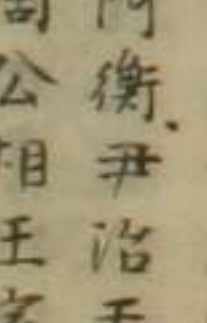 阿衡尹治
周公相王